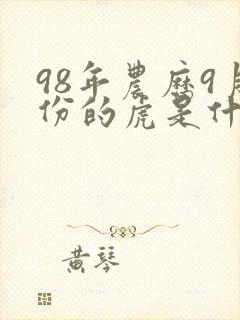 98年農歷9月
份的虎是什
黄琴